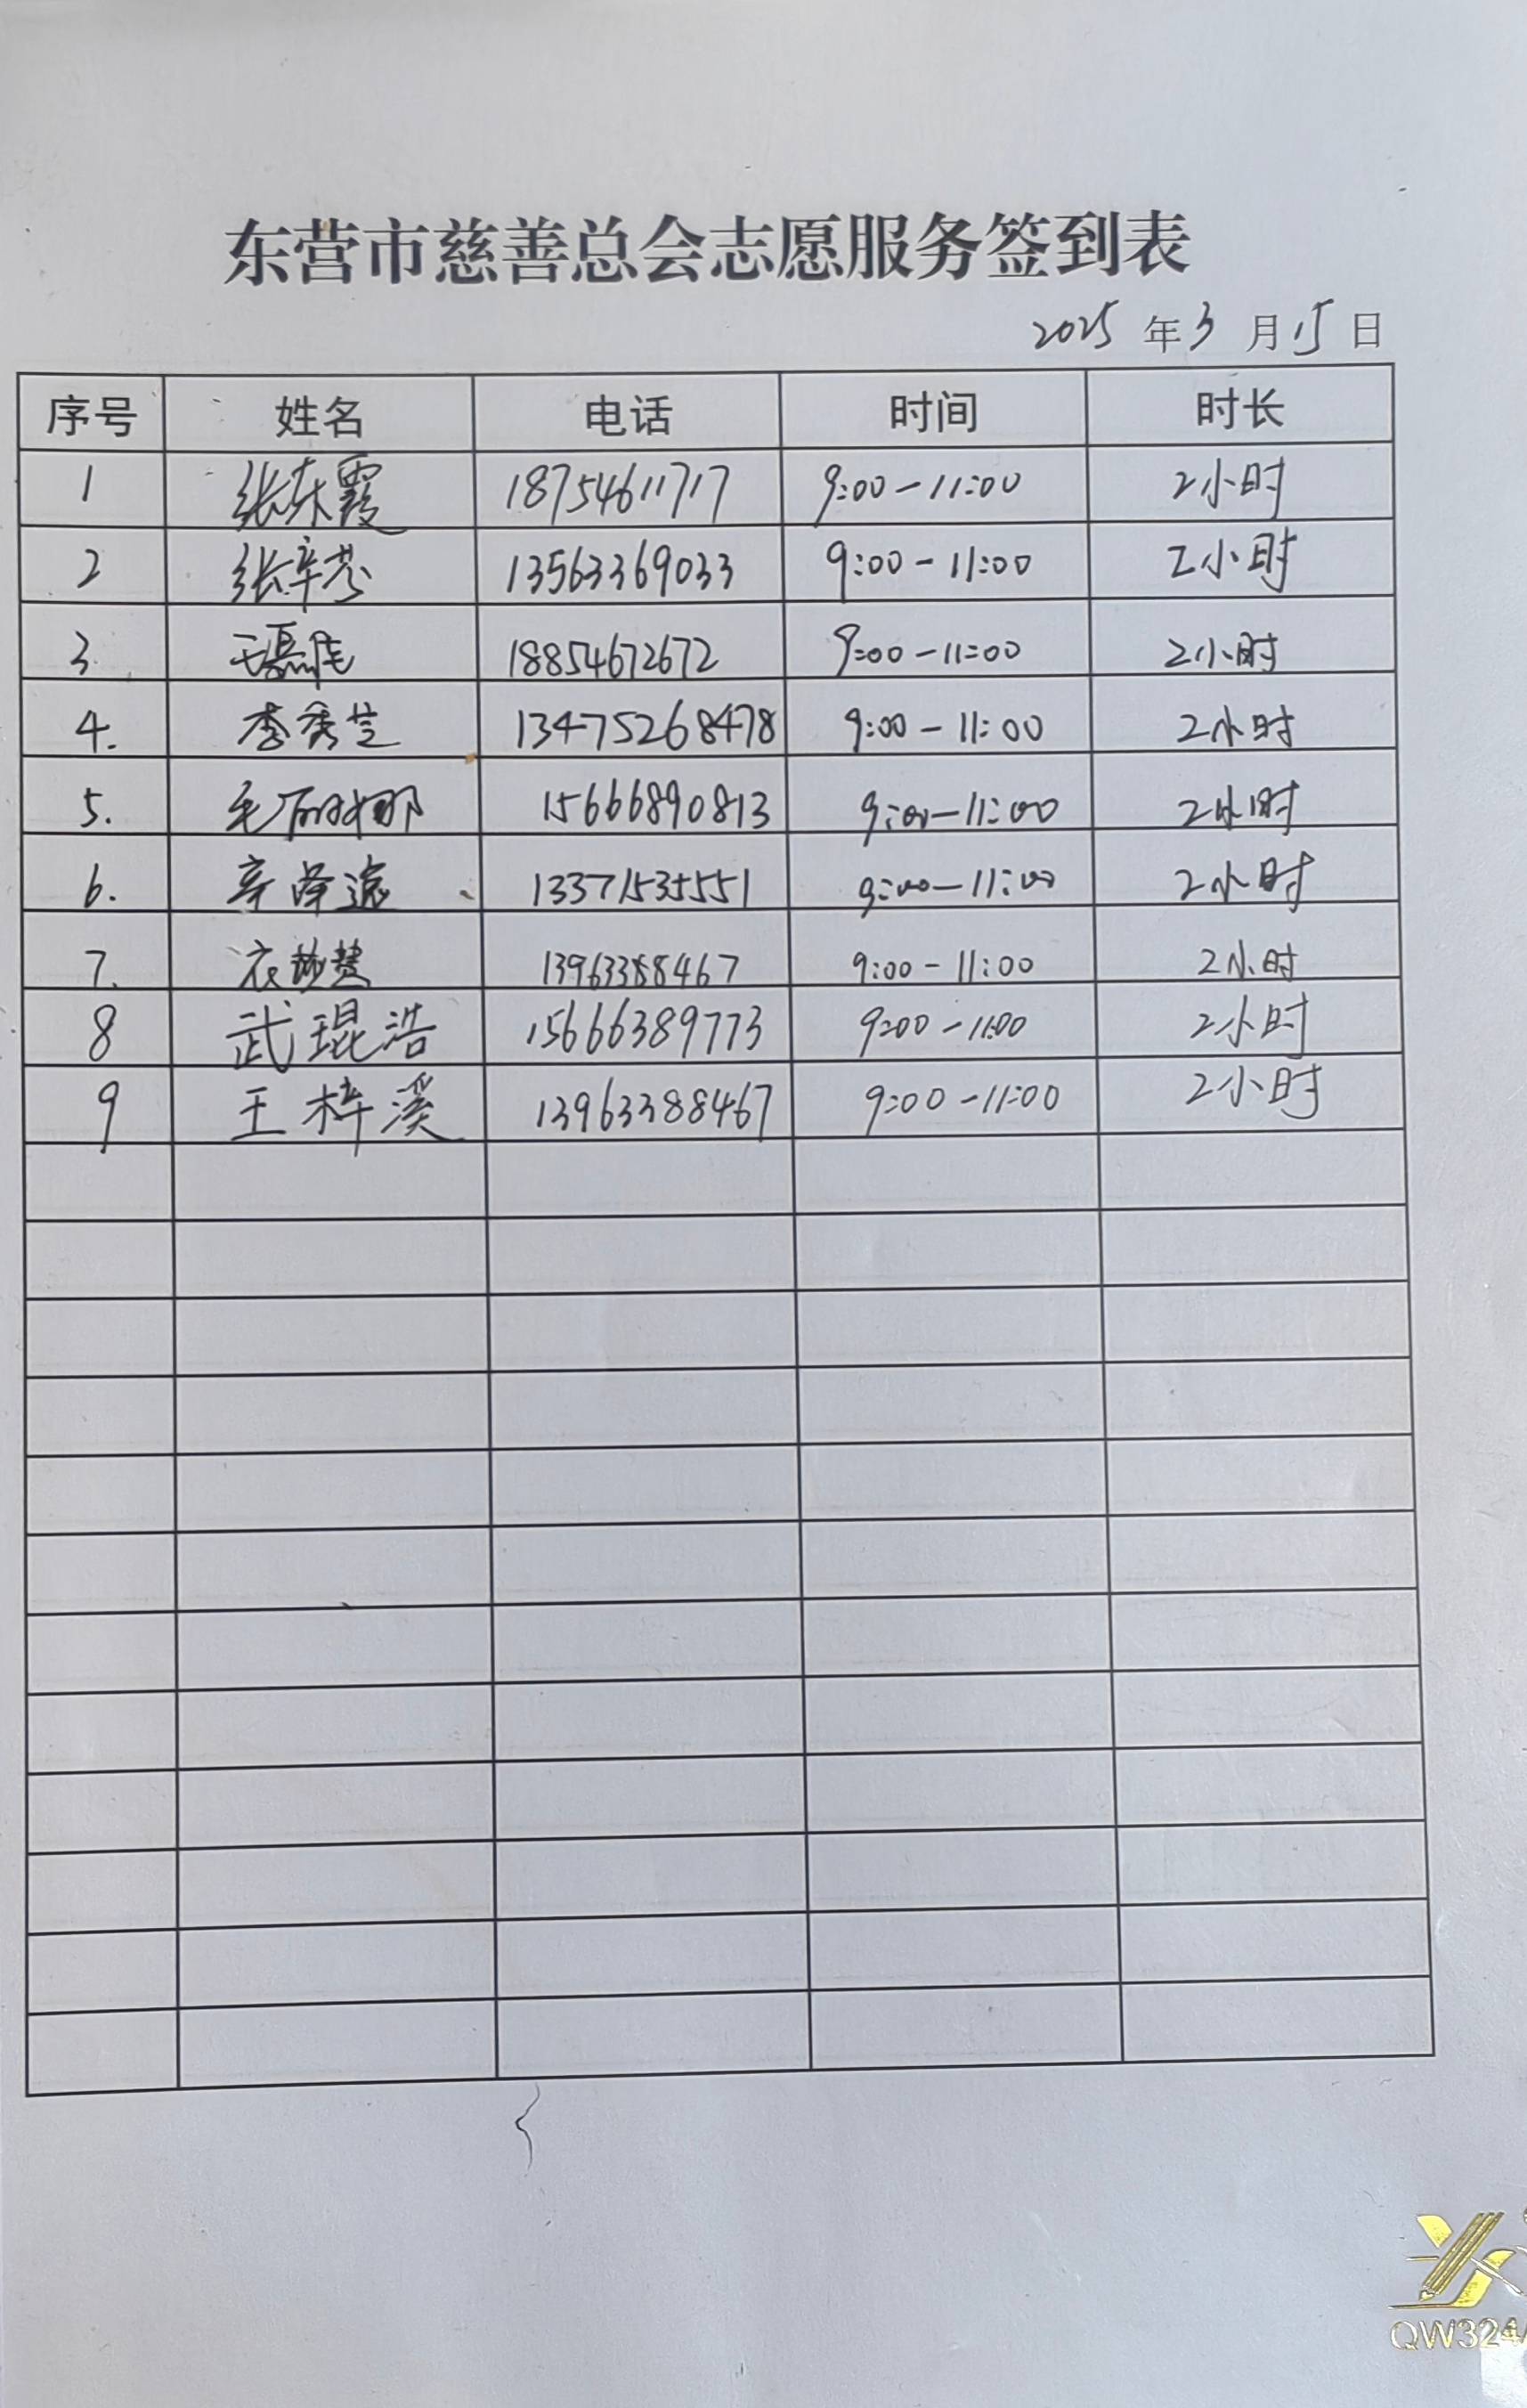 东营市慈善总会志愿服务签到表
2025 年 3 月 15 日
序号 姓名 电话 时间 时长
1 张东霞 18754611717 9:00-11:00 2小时
2 张辛芬 13563369033 9:00-11:00 2小时
3. 18854672672 9:00-11:00 2小时
4. 李秀芝 13475268478 9:00-11:00 2小时
5. 毛丽娜 15666890813 9:00-11:00 2小时
6. 辛泽远 13371535551 9:00-11:00 2小时
7. 13963388467 9:00-11:00 2小时
8 武琨浩 15666389773 9:00-11:00 2小时
9 王梓溪 13963388467 9:00-11:00 2小时
QW324